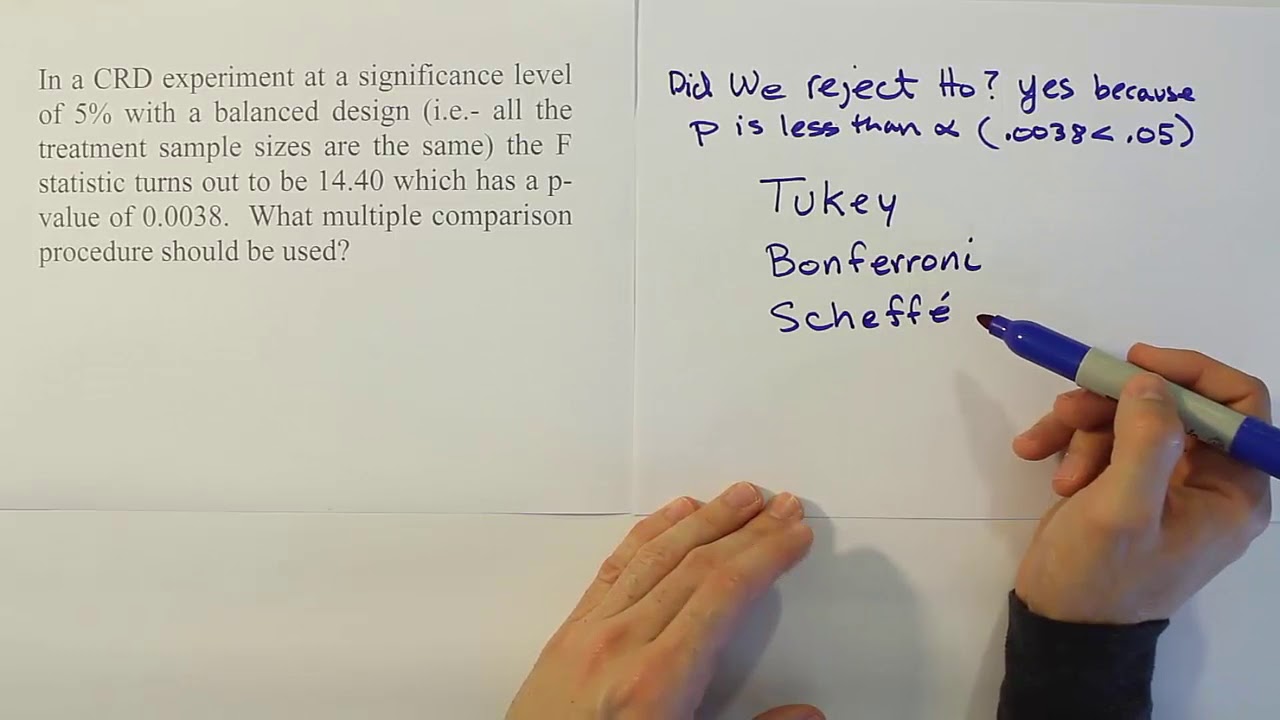 In a CRD experiment at a significance level
of 5% with a balanced design (i.e.- all the
treatment sample sizes are the same) the F
statistic turns out to be 14.40 which has a p-
value of 0.0038. What multiple comparison
procedure should be used?
Did We reject Ho? yes because
p is less than α (.0038< .05)
Tukey
Bonferroni
Scheffé